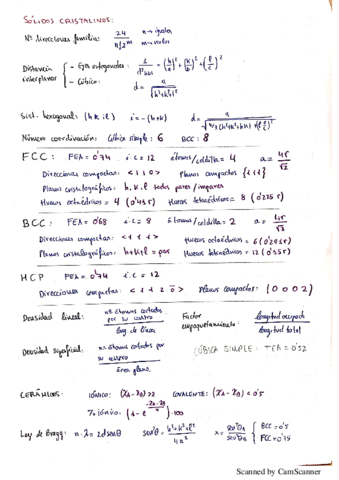 SÓLIDOS CRISTALINOS:
Nº direcciones familia: 24 / n! 2^m n → iguales m → nulos
Distancia interplanar { - Ejes ortogonales: 1/d²hkl = (h/a)² + (k/b)² + (l/c)²
- Cúbica: d = a / √(h²+k²+l²)
Sist. hexagonal: (h k i l) i = -(h+k) d = a /
Número coordinación: Cúbica simple: 6 BCC: 8
FCC: FEA = 0'74 i.c = 12 átomos/celdilla = 4 a = 4r/√2
Direcciones compactas: <110> Planos compactos {111}
Planos cristalográficos: h, k, l todos pares/impares
Huecos octaédricos = 4 Huecos tetraédricos = 8 (0'225r)
BCC: FEA = 0'68 i.c = 8 átomos/celdilla = 2 a = 4r/√3
Direcciones compactas: <111> Huecos octaédricos = 6
Planos cristalográficos: h+k+l = par Huecos tetraédricos = 12
HCP FEA = 0'74 i.c = 12
Direcciones compactas: <112̄0> Planos compactos: (0002)
Densidad lineal: nº átomos cortados por su centro / long. de línea Factor empaquetamiento: longitud ocupada / longitud total
Densidad superficial: nº átomos cortados por su centro / área plano. CÚBICA SIMPLE: FEA = 0'52
CERÁMICOS: IÓNICO: COVALENTE:
% iónico:
Ley de Bragg: n·λ = 2d senθ sen²θ = { BCC = 0'5
FCC = 0'75
Scanned by CamScanner